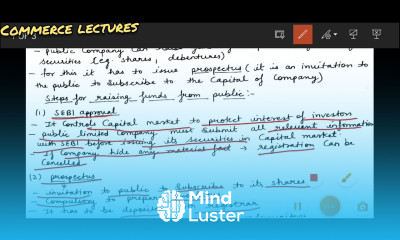 COMMERCE LECTURES
- public Company can
securities (eg. shares, debentures)
- for this it has to issue prospectus (it is an invitation to
the public to subscribe to the Capital of Company)
Steps for raising funds from public:-
(1) SEBI approval
- It controls Capital market to protect interest of investors
- public limited Company must submit all relevant information
with SEBI before issuing its securities in Capital market.
- If Company hide any material fact → registration can be
Cancelled
(2) prospectus
- invitation to public to subscribe to its shares
- Compulsory to prepare
- It has to be deposited registrar
Mind
Luster